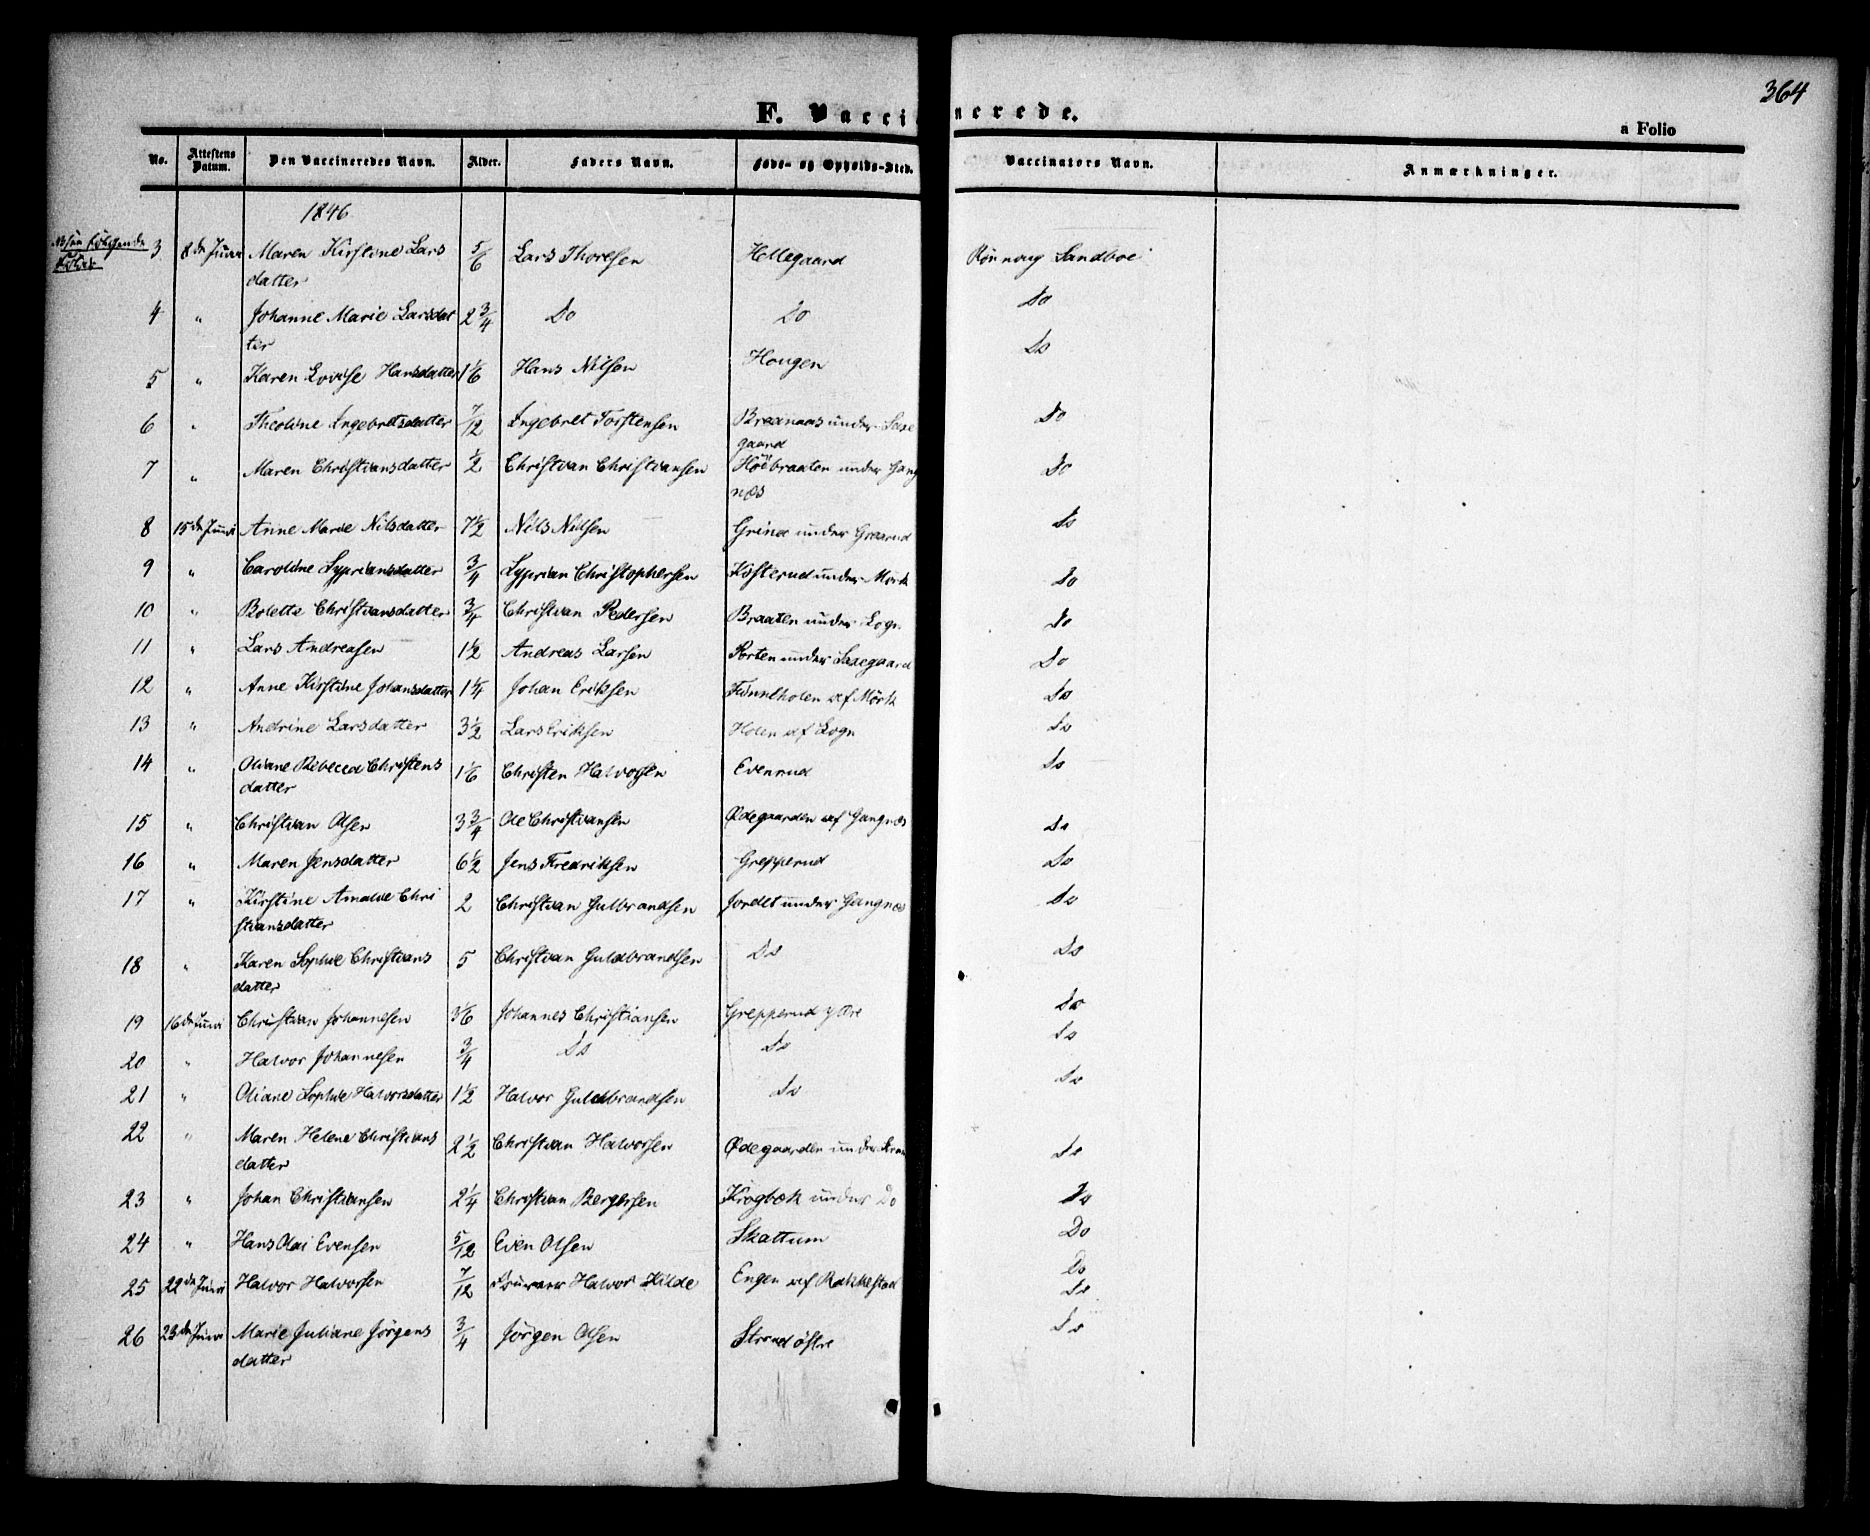 364
F. Vaccinerede.
a Folio
No. Attestens Datum. Den Vaccineredes Navn. Alder. Faders Navn. Føde- og Opholds-Sted. Vaccinators Navn. Anmærkninger.
1846
3 8de Juni Maren Kirstine Lars 5/6 Lars Thoresen Hellegaard Rønnoug Sandboe
datter
4 " Johanne Marie Larsdat 2 3/4 Do Do Do
ter
5 " Karen Lovise Hansdatter 1 1/6 Hans Nilsen Hougen Do
6 " Theoline Ingebretsdatter 7/12 Ingebret Torstensen Breenaas under Saxe Do
gaard
7 " Maren Christiansdatter 1/2 Christian Christiansen Høebraaten under Gang Do
næs
8 15de Juni Anne Marie Nilsdatter 7 1/2 Nils Nilsen Grind under Graarud Do
9 " Caroline Sypriansdatter 3/4 Syprian Christophersen Kosterud under Mørk Do
10 " Bolette Christiansdatter 3/4 Christian Pedersen Braaten under Sogn Do
11 " Lars Andreasen 1 1/2 Andreas Larsen Porten under Saxegaard Do
12 " Anne Kirstine Johansdatter 1 1/4 Johan Eriksen Tunnelholen af Mørk Do
13 " Andrine Larsdatter 3 1/2 Lars Eriksen Holen af Sogn Do
14 " Oliane Rebecca Christens 1 1/6 Christen Halvorsen Evenrud Do
datter
15 " Christian Olsen 3 3/4 Ole Christiansen Ødegaarden af Gangnæs Do
16 " Maren Jensdatter 6 1/2 Jens Fredriksen Grepperud Do
17 " Kirstine Amalie Chri 2 Christian Gulbrandsen Jordet under Gangnæs Do
stiansdatter
18 " Karen Sophie Christians 5 Christian Guldbrandsen Do Do
datter
19 16de Juni Christian Johannesen 3 1/6 Johannes Christiansen Grepperud ytre Do
20 " Halvor Johannesen 3/4 Do Do Do
21 " Oliane Sophie Halvorsdatter 1 1/2 Halvor Guldbrandsen Do Do
22 " Maren Helene Christians 2 1/2 Christian Halvorsen Ødegaarden under Do
datter
23 " Johan Christiansen 2 1/4 Christian Bergersen Krogbæk under Do Do
24 " Hans Olai Evensen 5/12 Even Olsen Skattum Do
Do
25 22de Juni Halvor Halvorsen 7/12 Halvor Hilde Engen af Rakkestad Do
26 23de Juni Marie Juliane Jörgens 3/4 Jörgen Olsen Strand östre Do
datter